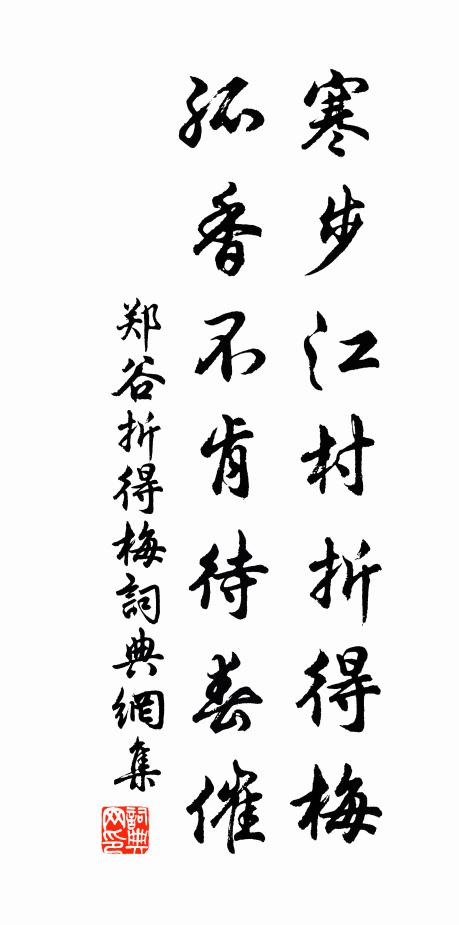 寒步江村折得梅
孤香不肯待春催
郑谷折得梅詞典網集
詞典网印